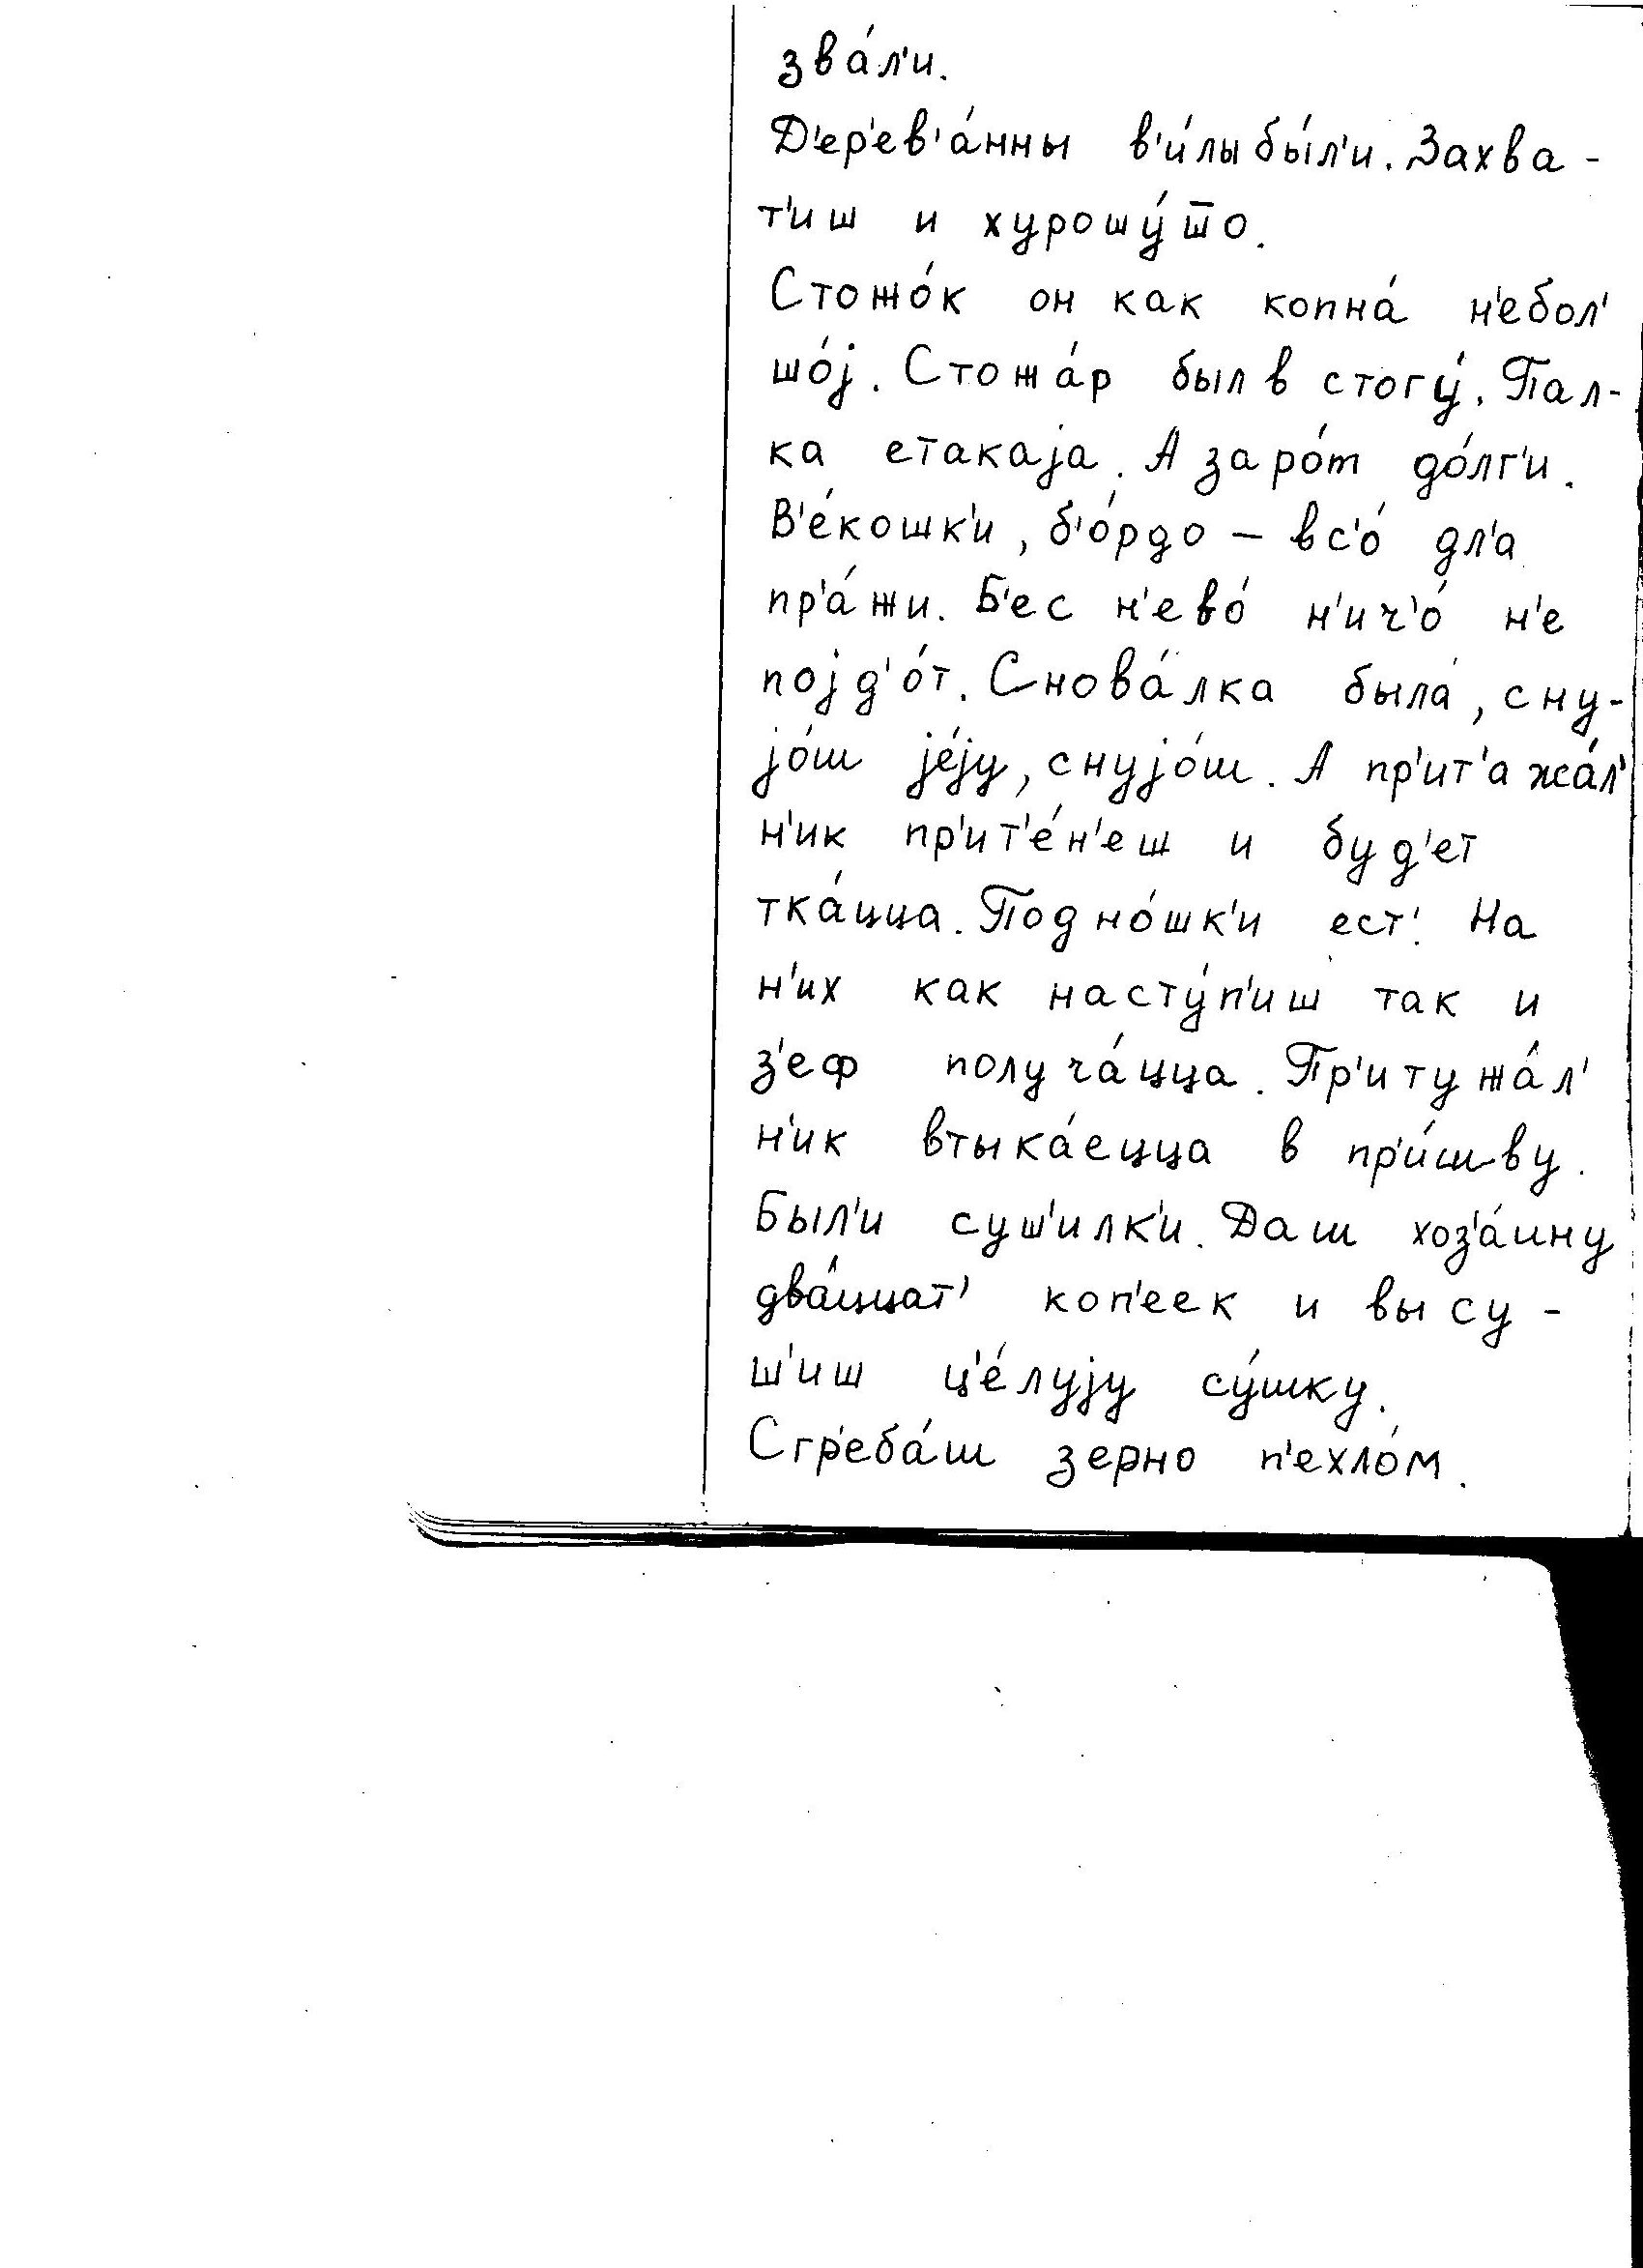 зва́л'и.
Д'ер'ев'а́нны в'и́лы бы́л'и. Захва-
т'иш и хурошу́што.
Стожо́к он как копна́ н'ебол'
шо́j. Стожа́р был в стогу́. Пал-
ка етакаjа. А заро́т до́лг'и.
В'е́кошк'и, б'о́рдо – вс'о́ дл'а
пр'а́жи. Б'ес н'ево́ н'ич'о́ н'е
поjд'о́т. Снова́лка была́, сну-
jо́ш jе́jу, снуjо́ш. А пр'ит'ажа́л'
н'ик пр'ит'е́н'еш и буд'ет
тка́цца. Подно́шк'и ест'. На
н'их как насту́п'иш так и
з'еф получа́цца. Пр'итужа́л'
н'ик втыка́ецца в пр'и́шву.
Был'и суш'илк'и. Даш хоз'а́ину
два́ццат' коп'еек и высу-
ш'иш ц'е́луjу су́шку.
Сгр'еба́ш зерно п'ехло́м.